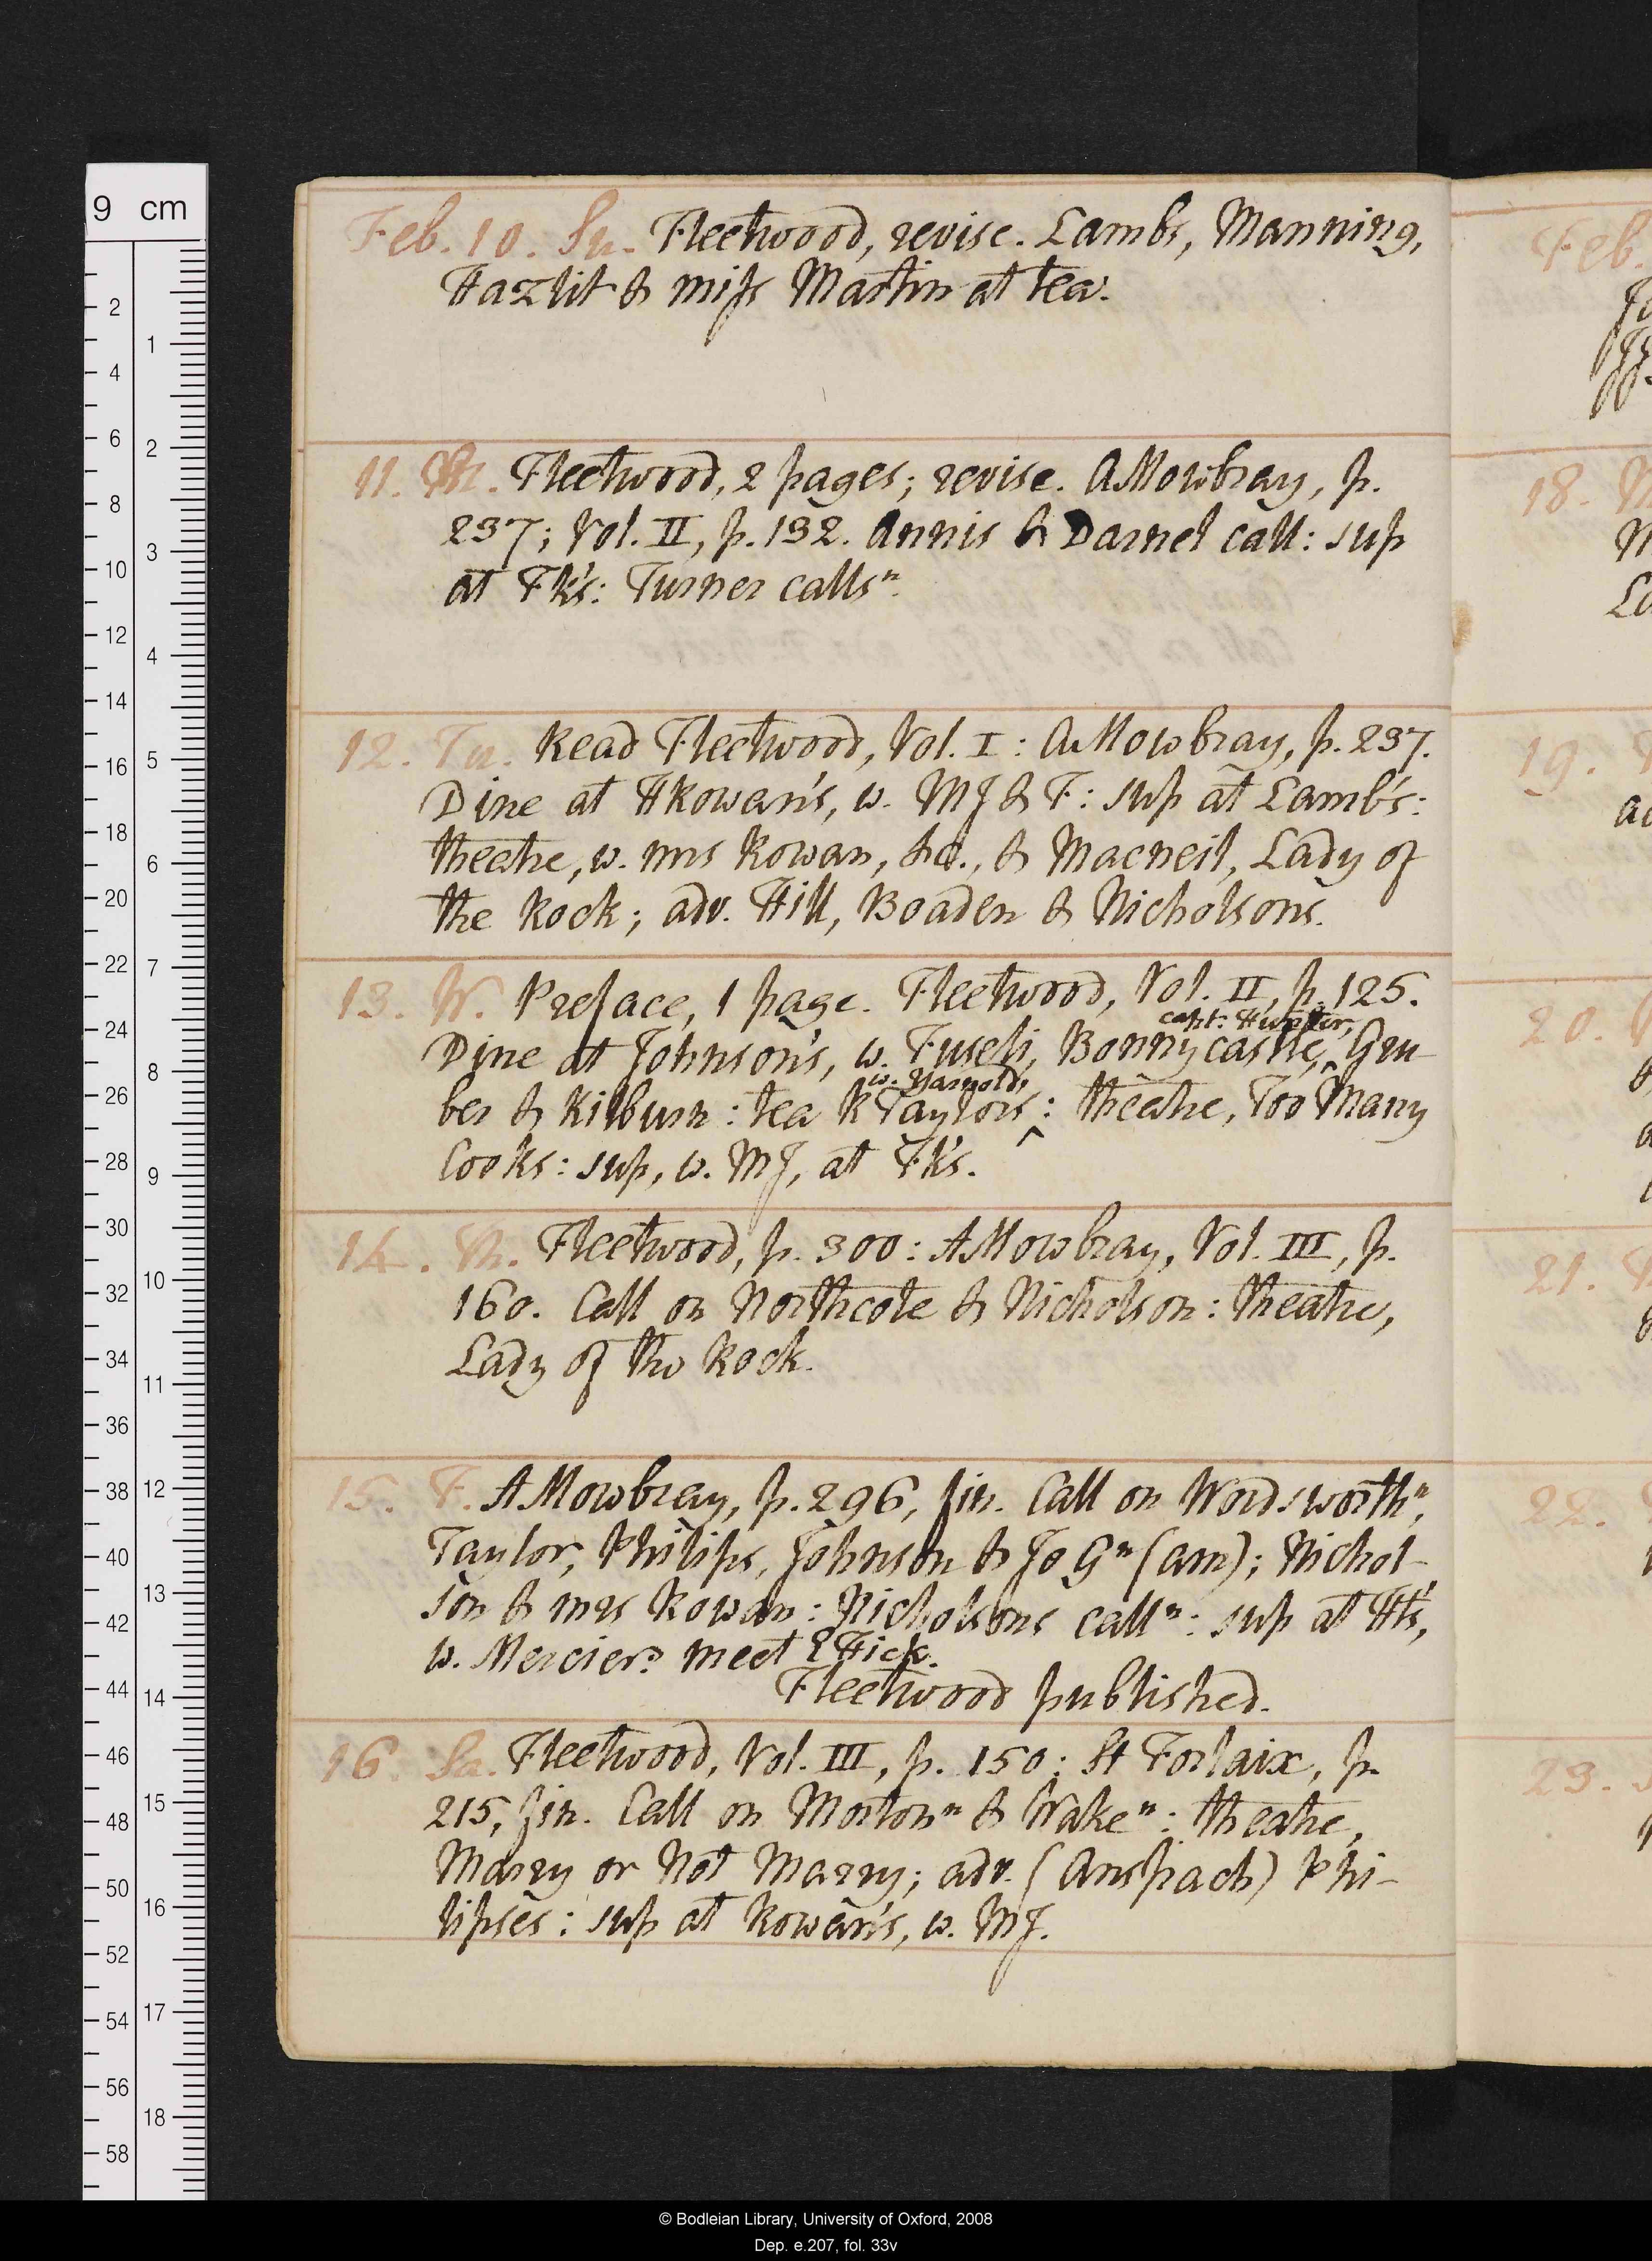 Feb. 10. Su. Fleetwood, revise. Lambs, Manning,
Hazlit & miss Martin at tea.
11. M. Fleetwood, 2 pages; revise. AMowbray, p.
237; Vol. II, p. 132. Annis & Darnel call: sup
at Fk's: Turner callsⁿ.
12. Tu. Read Fleetwood, Vol. I: AMowbray, p. 237.
Dine at HRowan's, w. MJ & F: sup at Lamb's:
theatre, w. mrs Rowan, &c., & Macneil, Lady of
the Rock; adv. Hill, Boaden & Nicholsons.
13. W. Preface, 1 page. Fleetwood, Vol. II, p. 125.
capt. Hunter,
Dine at Johnson's, w. Fuseli, Bonnycastle,^ Gru-
w. Yarnold,
ber & Kilburn: tea RTaylors^: theatre, Too Many
Cooks: sup, w. MJ, at Fk's.
14. Th. Fleetwood, p. 300: AMowbray, Vol. III, p.
160. Call on Northcote & Nicholson: theatre,
Lady of the Rock.
15. F. AMowbray, p. 296, fin. Call on Wordsworthⁿ,
Taylor, Philips, Johnson & Jo Gⁿ (am); Nichol-
son & mrs Rowan: Nicholsons callⁿ: sup at Ht's,
w. Mercier: meet EHick.
Fleetwood published.
16. Sa. Fleetwood, Vol. III, p. 150: St Forlaix, p.
215, fin. Call on Mortonⁿ & Wakeⁿ: theatre,
Marry or Not Marry; adv. (Anspach) Phi-
lipses: sup at Rowan's, w. MJ.
Feb.
18. M
19.
20.
21.
22.
23.
9 cm
2
4
6
8
10
12
14
16
18
20
22
24
26
28
30
32
34
36
38
40
42
44
46
48
50
52
54
56
58
1
2
3
4
5
6
7
8
9
10
11
12
13
14
15
16
17
18
© Bodleian Library, University of Oxford, 2008
Dep. e.207, fol. 33v